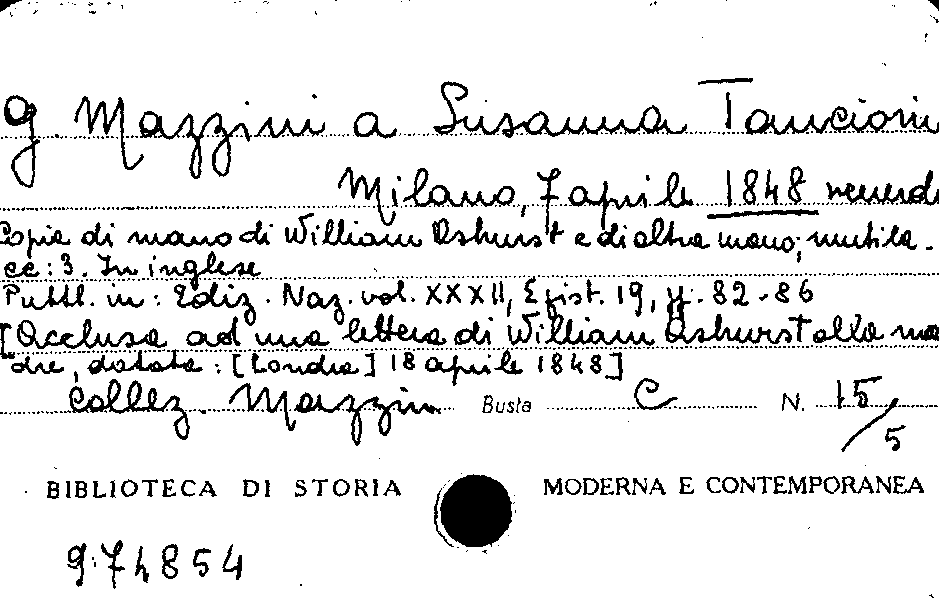 G. Mazzini a Susanna Tancioni
Milano, 7 aprile 1848 venerd
Copia di mano di William Ashurst e di altra mano; mutila.
cc: 3. In inglese
Pubbl. in: Ediz. Naz. vol. XXXII, Epist. 19, pp. 82-86
[Acclusa ad una lettera di William Ashurst alla ma
dre, datata: [Londra] 18 aprile 1848]
Collez. Mazzini Busta C N. 15/5
BIBLIOTECA DI STORIA MODERNA E CONTEMPORANEA
9.74854